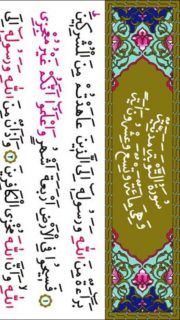 سُورَةُ التَّوْبَةِ مَدَنِيَّةٌ
وَهِيَ مِائَةٌ وَتِسْعٌ وَعِشْرُونَ آيَةً
بَرَاءَةٌ مِنَ اللَّهِ وَرَسُولِهِ إِلَى الَّذِينَ عَاهَدْتُمْ مِنَ الْمُشْرِكِينَ
① فَسِيحُوا فِي الْأَرْضِ أَرْبَعَةَ أَشْهُرٍ وَاعْلَمُوا أَنَّكُمْ غَيْرُ مُعْجِزِي
اللَّهِ وَأَنَّ اللَّهَ مُخْزِي الْكَافِرِينَ ② وَأَذَانٌ مِنَ اللَّهِ وَرَسُولِهِ إِلَى